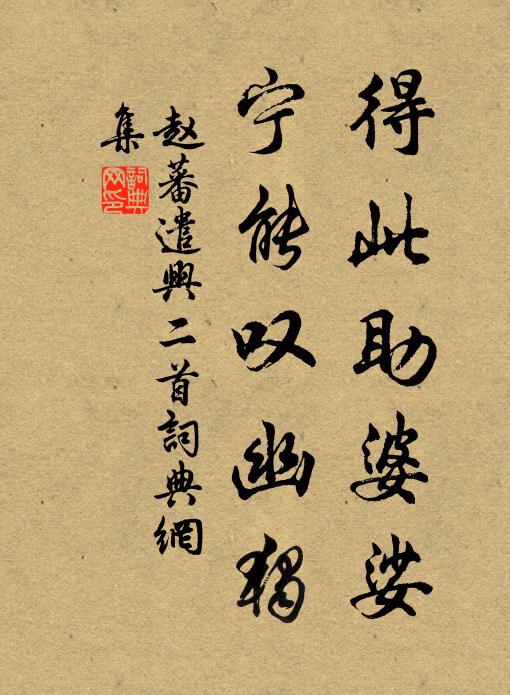 得此助婆娑
宁能叹幽独
赵蕃遣興二首詞典網
集
詞典
网印